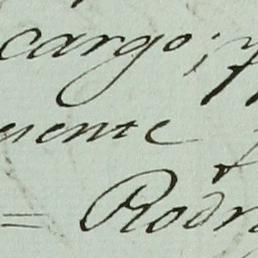 cargo; y
sente
= Rodr